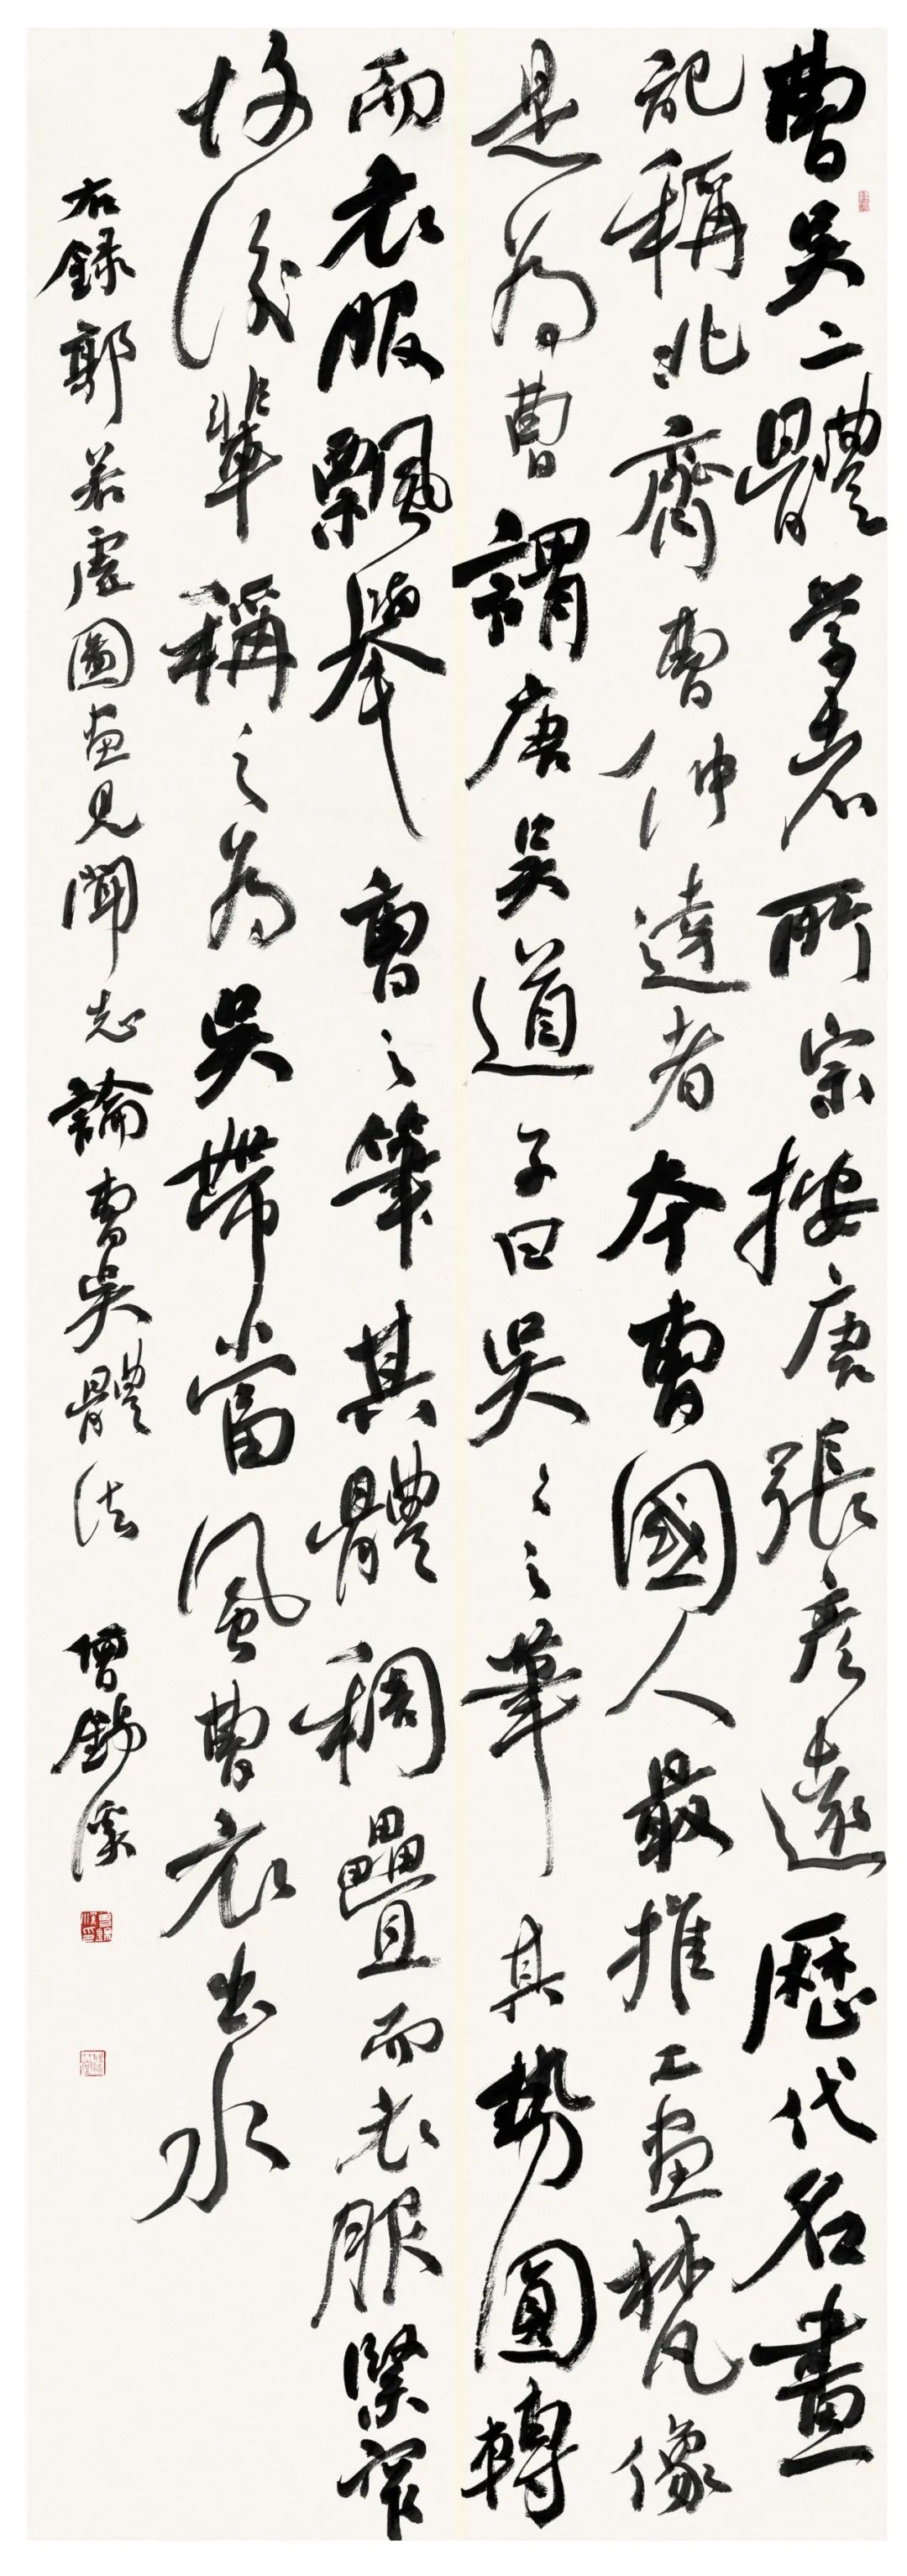 曹吳二體學者所宗按唐張彥遠歷代名畫
記稱北齊曹仲達者本曹國人最推工畫梵像
是為曹謂唐吳道子曰吳〻之筆其勢圓轉
而衣服飄舉曹之筆其體稠疊而衣服緊窄
故後輩稱之為吳帶當風曹衣出水
右錄郭若虛圖畫見聞志論曹吳體法 曾錦溪